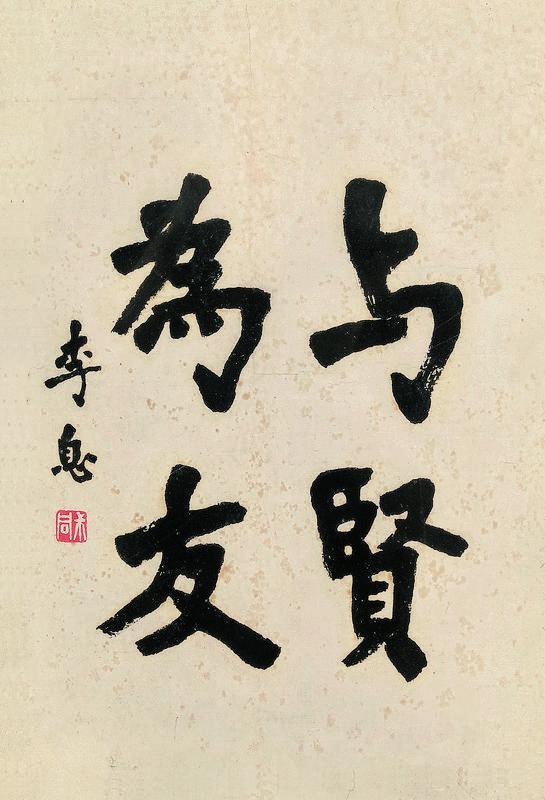 与賢
為友
李息
叔同